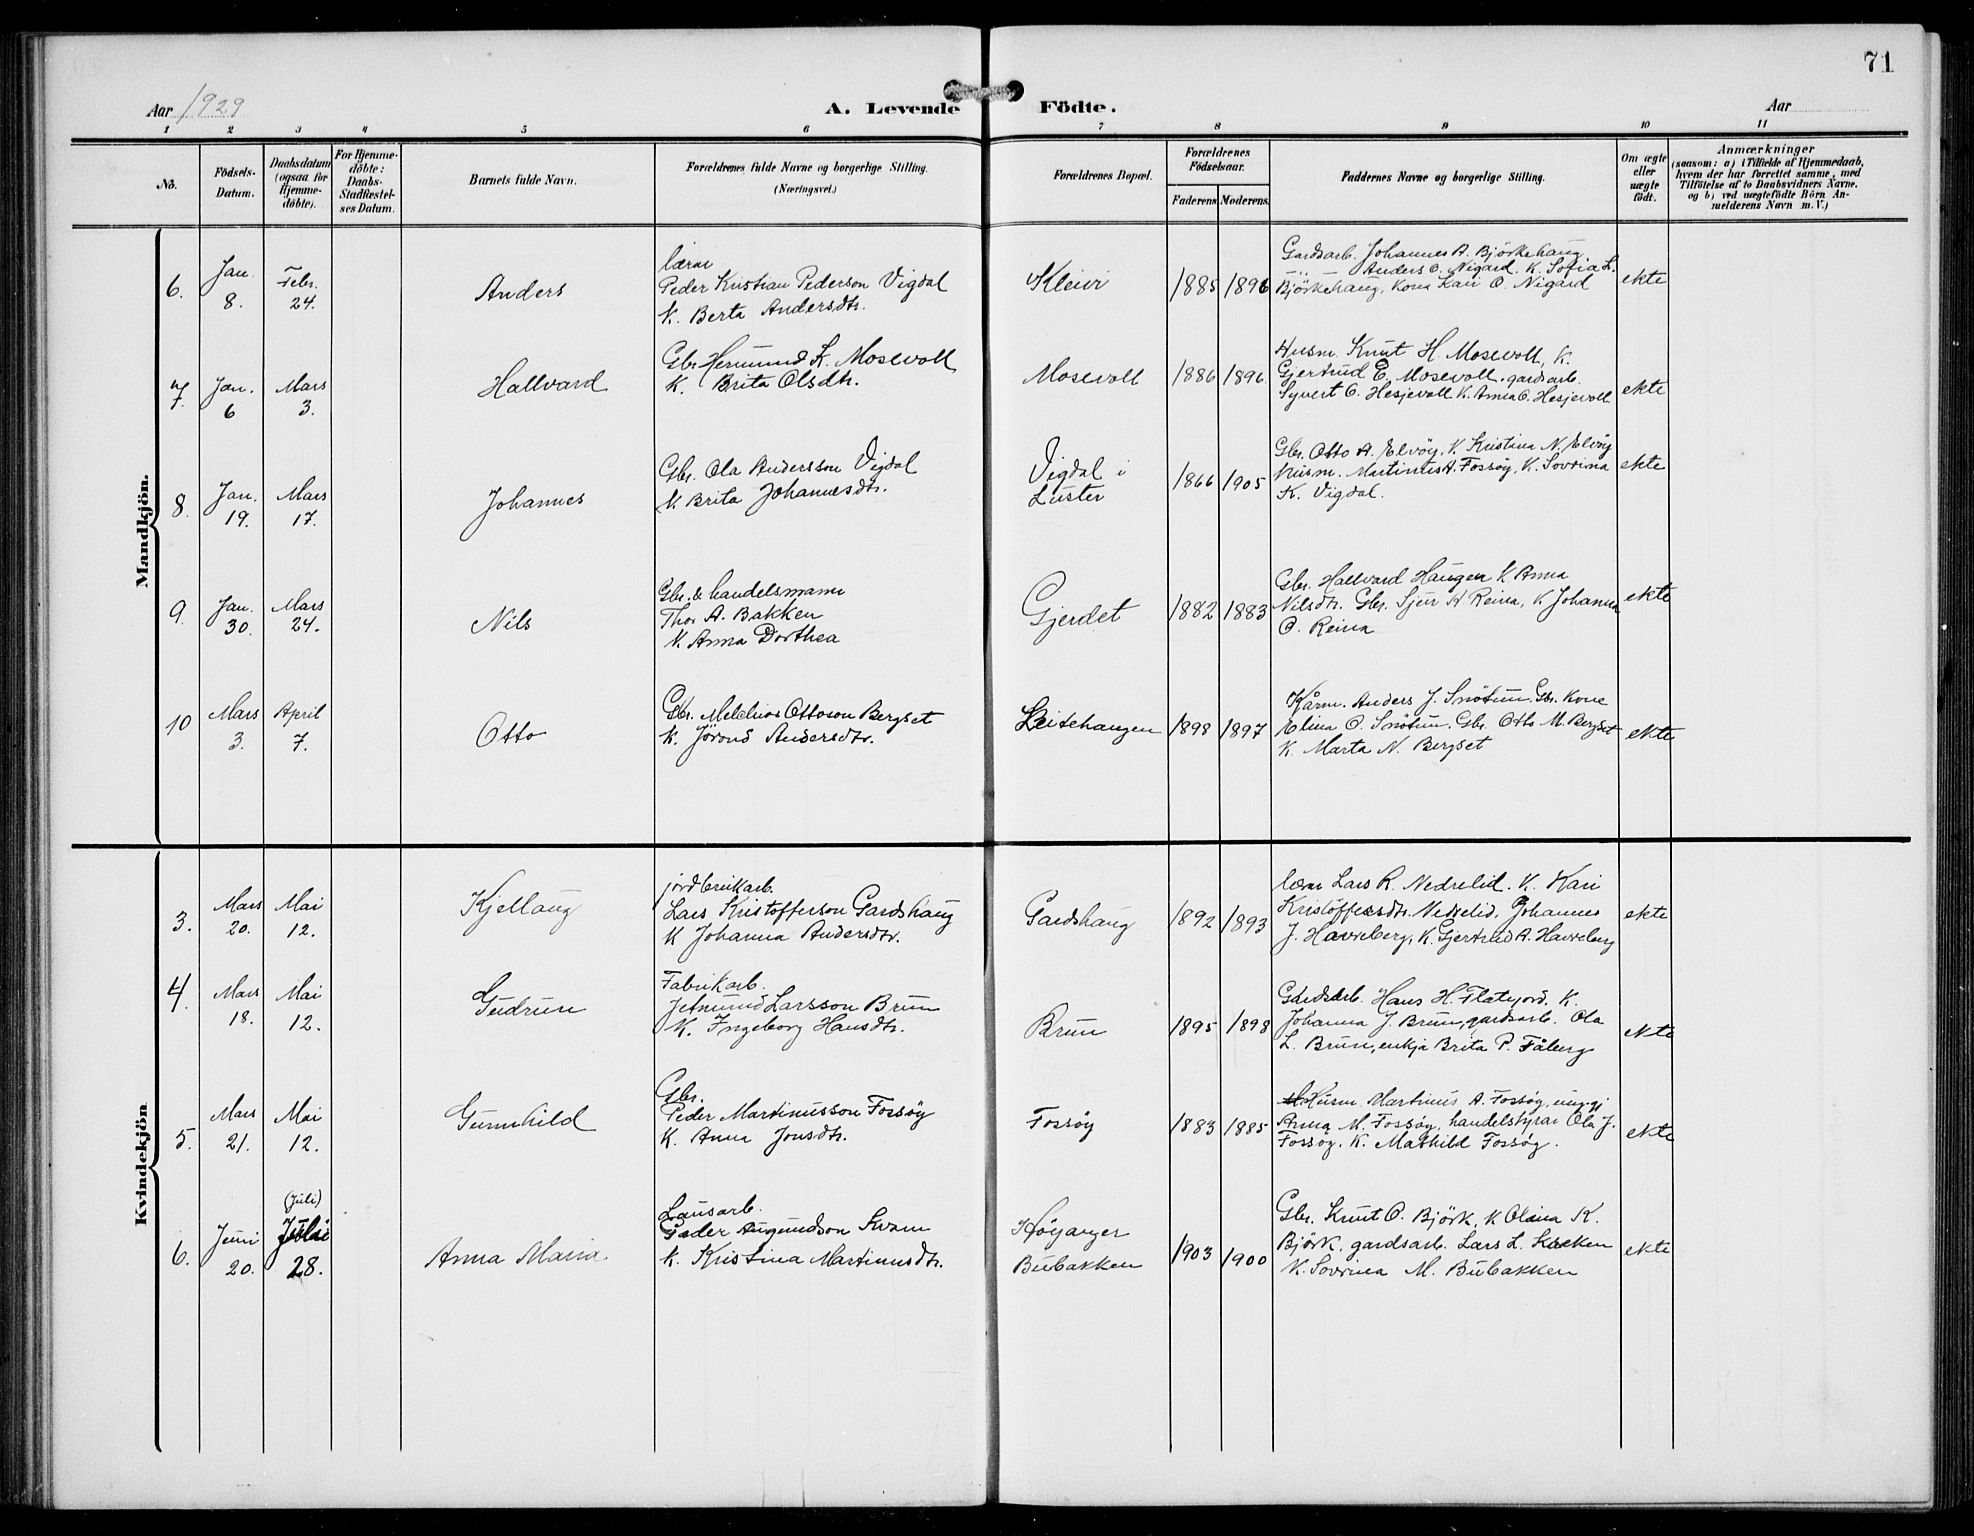 71
Aar 1929
A. Levende Födte.
Aar
1 2 3 4 5 6 7 8 9 10 11
No.
Födsels-
Datum.
Daabsdatum
(ogsaa for
Hjemme-
döbte).
For Hjemme-
döbte:
Daabs-
Stadfæstel-
ses Datum.
Barnets fulde Navn.
Forældrenes fulde Navne og borgerlige Stilling.
(Næringsvei.)
Forældrenes Bopæl.
Forældrenes
Födselsaar.
Faderens Moderens
Faddernes Navne og borgerlige Stilling.
Om ægte
eller
uægte
födt.
Anmærkninger
(saasom: a) i Tilfælde af Hjemmedaab,
hvem der har forrettet samme, med
Tilföielse af to Daabsvidners Navne.
og b) ved uægtefödte Börn An-
melderens Navn m. V.)
Mandkjön.
6.
Jan.
8.
Febr.
24.
Anders
lærar
Peder Kristian Pederson Vigdal
K. Berta Andersdtr.
Kleivi
1885 1896
Gardsarb. Johannes A. Björkehaug.
Anders O. Nigard. K. Sofia L.
Björkehaug, Kona Kari O. Nigard
ekte
7.
Jan.
6
Mars
3.
Hallvard
Gbr. Hermund K. Mosevoll
K. Brita Olsdtr.
Mosevoll
1886 1896
Husm. Knut H. Mosevoll, K.
Gjertrud E. Mosevoll. gardsarb.
Syvert O. Hesjevoll K. Anna O. Hesjevoll
ekte
8.
Jan.
19.
Mars
17.
Johannes
Gbr. Ola Andersson Vigdal
K. Brita Johannesdtr.
Vigdal i
Luster
1866 1905
Gbr. Otto A. Elvöy, K. Kristina N. Elvöy
Husm. Martinus A. Fossöy, K. Sovrina
K. Vigdal.
ekte
9.
Jan.
30.
Mars
24.
Nils
Gbr. & handelsmann
Thor A. Bakken
K. Anna Dorthea
Gjerdet
1882 1883
Gbr. Hallvard Haugen K. Anna
Nilsdtr. Gbr. Sjur A Reina, K. Johanna
O. Reina
ekte
10
Mars
3.
April
7.
Otto
Gbr. Melchior Ottoson Bergset
K. Jörond Andersdtr.
Leitehaugen
1898 1897
Kårm. Anders J. Snötun. Gbr. Kone
Elina O. Snötun. Gbr. Otto M. Bergset
K. Marta N. Bergset
ekte
Kvindekjön
3.
Mars
20.
Mai
12.
Kjellaug
jordbrukarb.
Lars Kristofferson Gardshaug
K Johanna Andersdtr.
Gardshaug
1892 1893
lærar Lars R. Nedrelid. K. Kari
Kristoffersdtr. Nedrelid, Johannes
J. Havreberg, K. Gjertrud A. Havreberg
ekte
4.
Mars
18.
Mai
12.
Gudrun
Fabrikarb.
Jetmund Larsson Brun
K. Ingeborg Hansdtr.
Brun
1895 1898
Gardsarb. Hans H. Flatejord. K.
Johanna J. Brun, gardsarb. Ola
L. Brun, enkja Brita P. Fåberg
ekte
5.
Mars
21.
Mai
12.
Gunnhild
Gbr.
Peder Martinusson Fossöy
K. Anna Jonsdtr.
Fossöy
1883 1885
Husm. Martinus A. Fossöy, ungj
Anna M. Fossöy, handelstyrar Ola J.
Fossöy. K. Mathild Fossöy.
ekte
6.
Juni
20.
(Juli)
Juli
28.
Anna Maria.
Lausarb.
Peder Augundson Svam
K. Kristina Martinusdtr.
Høyanger
Bubakken
1903 1900
Gbr. Knut O. Björk, K Olina K.
Björk, gardsarb. Lars L. Kveken
K. Sovrina M. Bubakken
ekte